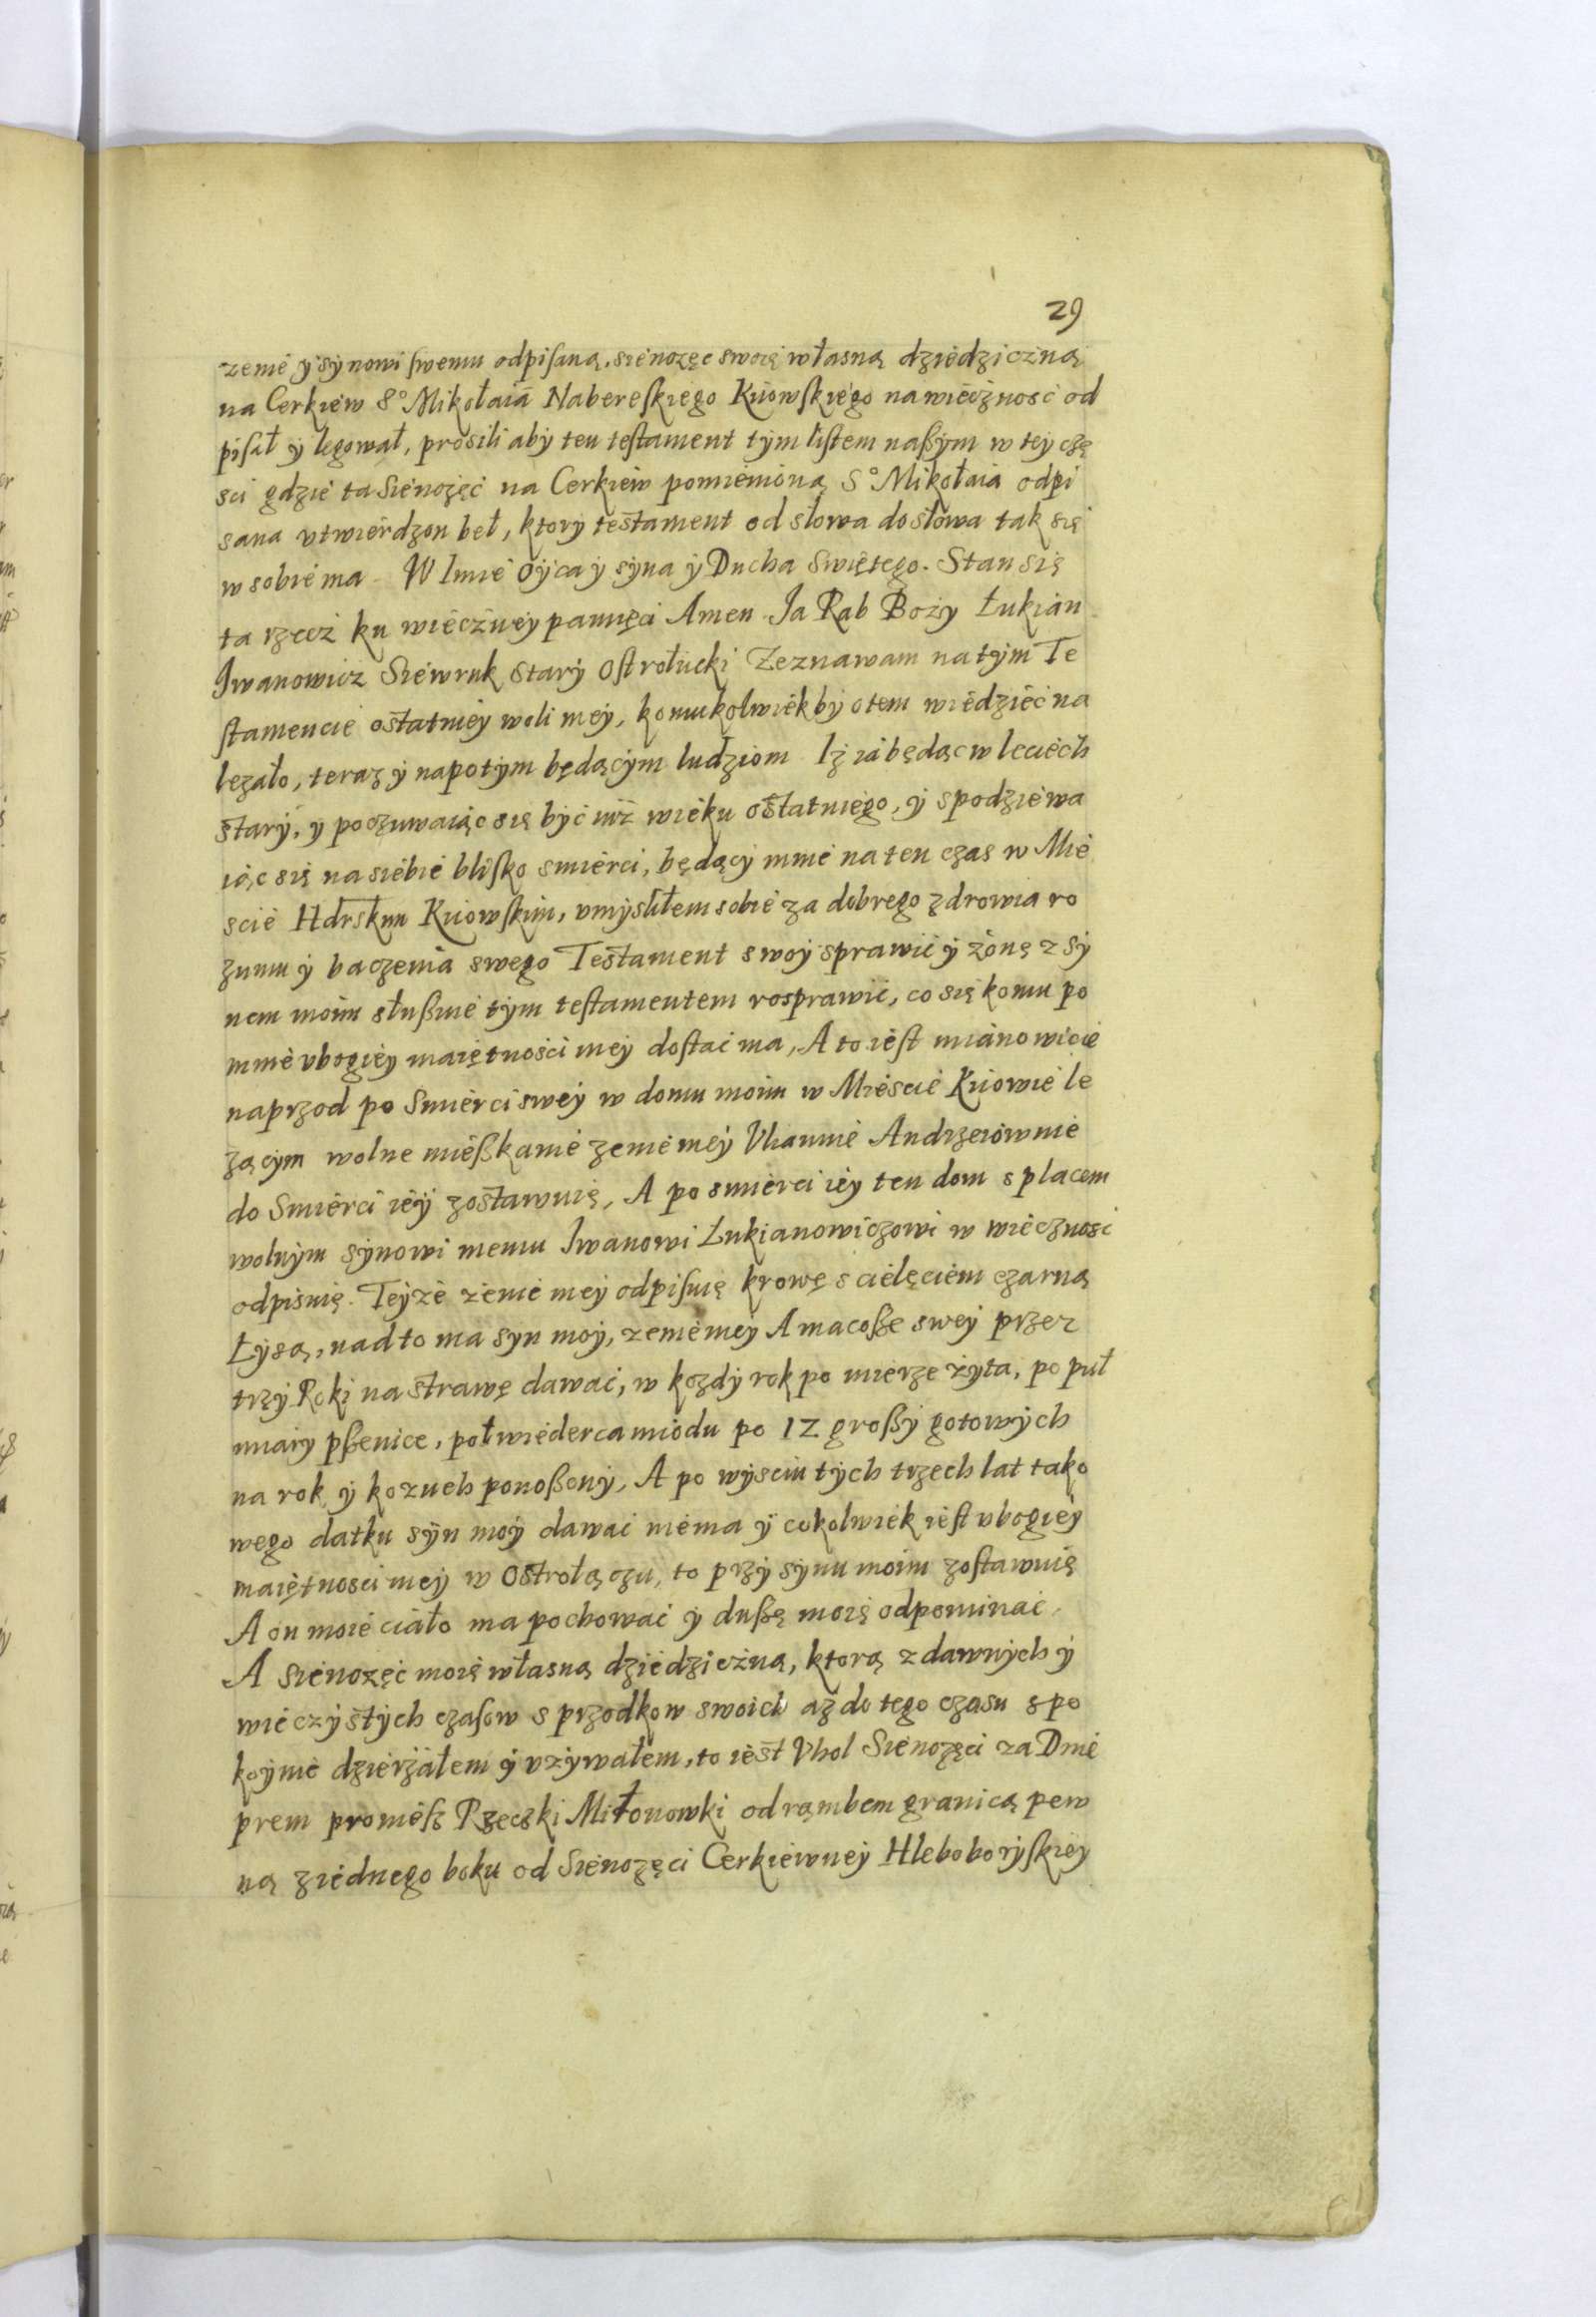 29
żenie y synowi swemu odpisaną, sienożęc swoię własną dziedziczną
na Cerkiew S° Mikołaia Nabereskiego Kiiowskiego na wiecznosć od
pisał y legował, prosili aby ten testament tym listem naßym w tey czę
sci gdzie ta Sienożęć na Cerkiew pomienioną S° Mikołaia odpi
sana utwierdzon beł, ktory testament od słowa do słowa tak się
w sobie ma W Imie Oyca y syna y Ducha Swiętego. Stan się
ta rzecz ku wieczney pamięci Amen Ja Rab Boży Łukian
Iwanowicz Siewruk stary Ostrołucki Zeznawam na tym Te
stamencie ostatniey woli mey, komukolwiek by o tem wiedzieć na
lezało, teraz y napotym będącym ludziom Iż ia będąc w leciech
stary, y poczuwaiąc się być iuż wieku ostatniego, y spodziewa
iąc się na siebie blisko smierci, będący mnie na ten czas w Mie
scie Hdrskim Kiiowskim, umysliłem sobie za dobrego zdrowia ro
zumu y baczenia swego Testament swoy sprawić y żonę z sy
nem moim słußnie tym testamentem rosprawić, co się komu po
mnie ubogiey maiętności mey dostać ma, A to iest mianowicie
naprzod po Smierci swey w domu moim w Miescie Kiiowie le
żącym wolne mießkanie żenie mey Uliannie Andrzeiownie
do Smierci iey zostawuię, A po smierci iey ten dom s placem
wolnym synowi memu Iwanowi Łukianowiczowi w wiecznosc
odpisuię. Teyże żenie mey odpisuię krowę s cielęciem czarną
Łysą, nad to ma syn moy, żenie mey A macoße swey przez
trzy Roki na strawę dawać, w kożdy rok po mierze żyta, po puł
miary pßenice, poł wiederca miodu po 12 großy gotowych
na rok y kożuch ponoßony, A po wysciu tych trzech lat tako
wego datku syn moy dawać niema y cokolwiek iest ubogiey
maiętnosci mey w Ostrołączu, to przy synu moim zostawuię
A on moie ciało ma pochować y dußę moię odpominać
A sienożęć moię własną dziedziczną, ktorą z dawnych y
wieczystych czasow s przodkow swoich aż do tego czasu spo
koynie dzierżałem y używałem, to iest Uhol Sienożęci za Dnie
prem promieß Rzeczki Miłonowki odrąmbem granicą pew
ną z iednego boku od Sienożęci Cerkiewney Hleboboryskiey